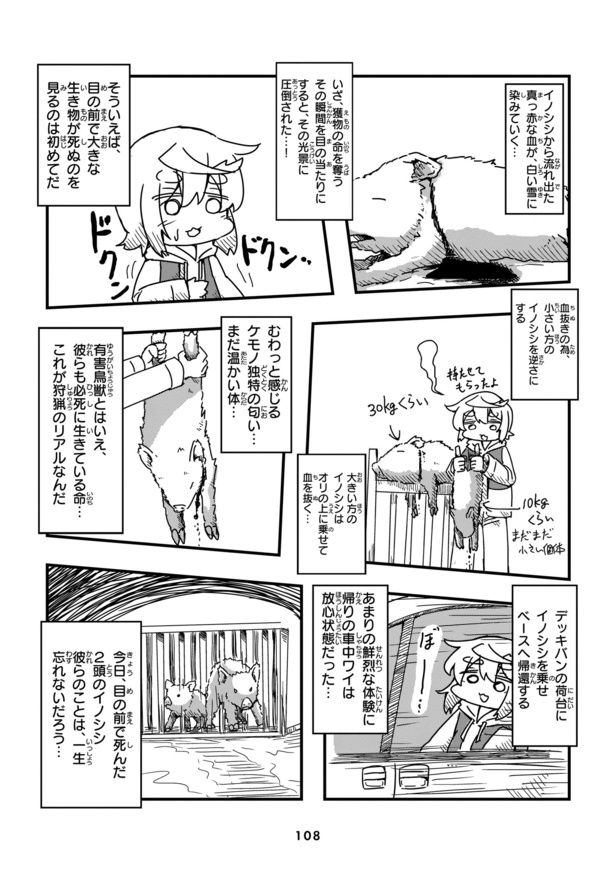 イノシシから流れ出た
真っ赤な血が、白い雪に
染みていく…
いざ、獲物の命を奪う
その瞬間を目の当たりに
すると、その光景に
圧倒された…！
そういえば、
目の前で大きな
生き物が死ぬのを
見るのは初めてだ
ドクン
ドクン
血抜きの為、
小さい方の
イノシシを逆さに
する
持たせて
もらったよ
30kgくらい
10kg
くらい
まだまだ
小さい個体
大きい方の
イノシシは
オリの上に乗せて
血を抜く…
むわっと感じる
ケモノ独特の匂い…
まだ温かい体…
有害鳥獣とはいえ、
彼らも必死に生きている命…
これが狩猟のリアルなんだ
デッキバンの荷台に
イノシシを乗せ
ベースへ帰還する
ぼー
あまりの鮮烈な体験に
帰りの車中ワイは
放心状態だった…
今日、目の前で死んだ
2頭のイノシシ
彼らのことは、一生
忘れないだろう…
108